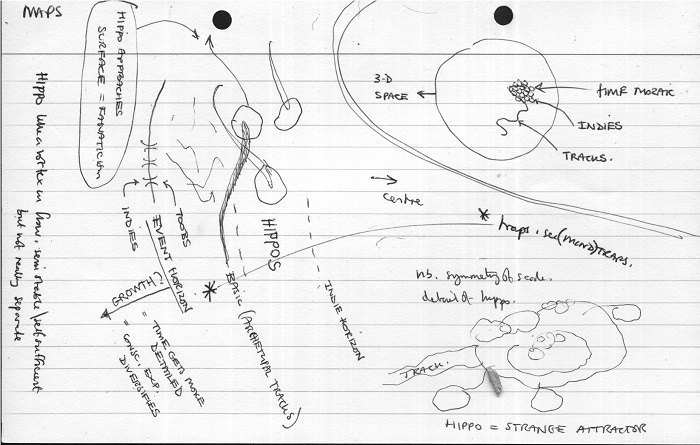 MAPS
HIPPO APPROACHES
SURFACE = FANATICISM
HIPPO like a vortex in flow, semi stable/self sufficient
but not really separate
INDIES
TOOBS
EVENT HORIZON
GROWTH?
= TIME GETS MORE
DETAILED
= CONSC. EXP.
DIVERSIFIES
HIPPOS
BASIC (ARCHETYPAL TRACKS)
INDIE HORIZON
3-D
SPACE
TIME MOZAIC
INDIES
TRACKS.
Centre
* traps, see (MEMO) TRAPS.
nb. symmetry of scale.
detail of hippo.
TRACK.
HIPPO = STRANGE ATTRACTOR